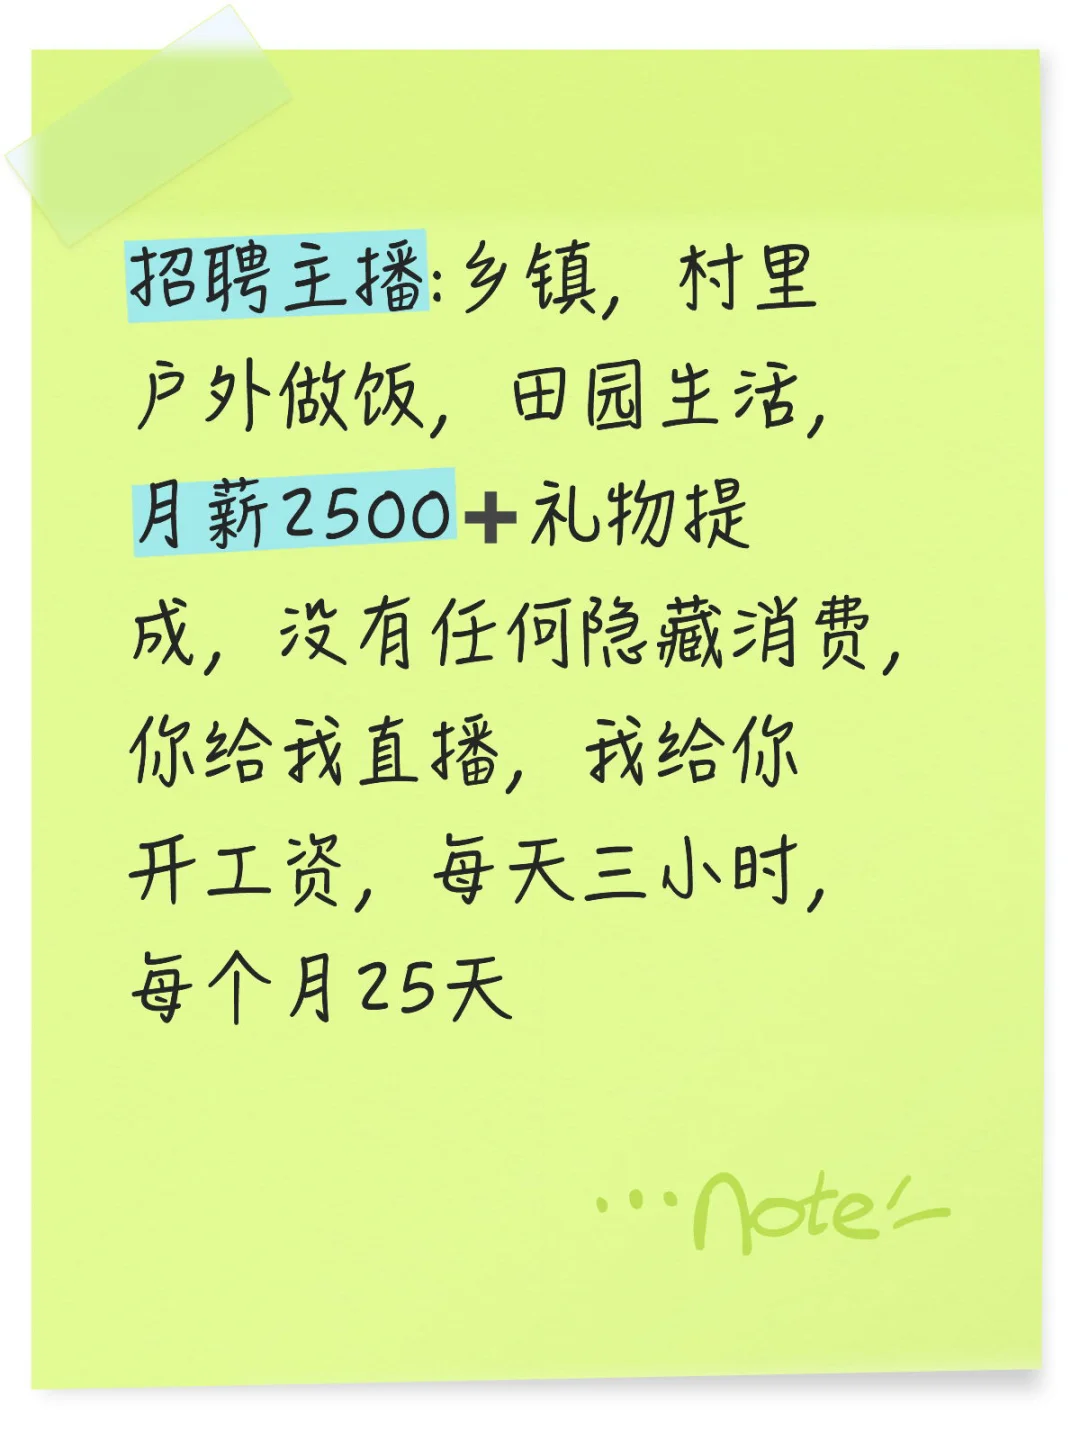 招聘主播:乡镇，村里
户外做饭，田园生活，
月薪2500➕礼物提
成，没有任何隐藏消费，
你给我直播，我给你
开工资，每天三小时，
每个月25天
...note